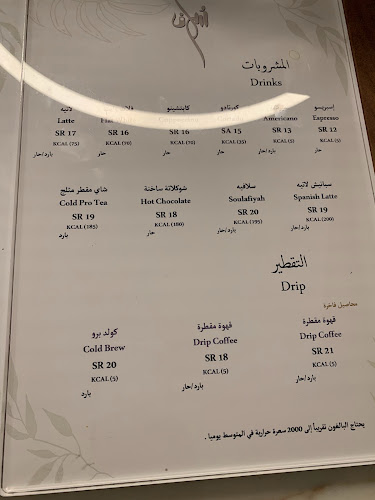 المشروبات
Drinks
إسبريسو
Espresso
SR 12
KCAL (5)
حار
Americano
SR 13
KCAL (5)
بارد/حار
كورتادو
SA 15
KCAL (35)
حار
كابتشينو
SR 16
KCAL (70)
حار
SR 16
KCAL (70)
لاتيه
Latte
SR 17
KCAL (75)
بارد/حار
سبانيش لاتيه
Spanish Latte
SR 19
KCAL (200)
بارد/حار
سلافيه
Soulafiyah
SR 20
KCAL (195)
بارد/حار
شوكلاتة ساخنة
Hot Chocolate
SR 18
KCAL (180)
حار
شاي مقطر مثلج
Cold Pro Tea
SR 19
KCAL (185)
بارد
التقطير
Drip
محاصيل فاخرة
قهوة مقطرة
Drip Coffee
SR 21
KCAL (5)
بارد/حار
قهوة مقطرة
Drip Coffee
SR 18
KCAL (5)
بارد/حار
كولد برو
Cold Brew
SR 20
KCAL (5)
بارد
يحتاج البالغون تقريباً إلى 2000 سعرة حرارية في المتوسط يوميا .